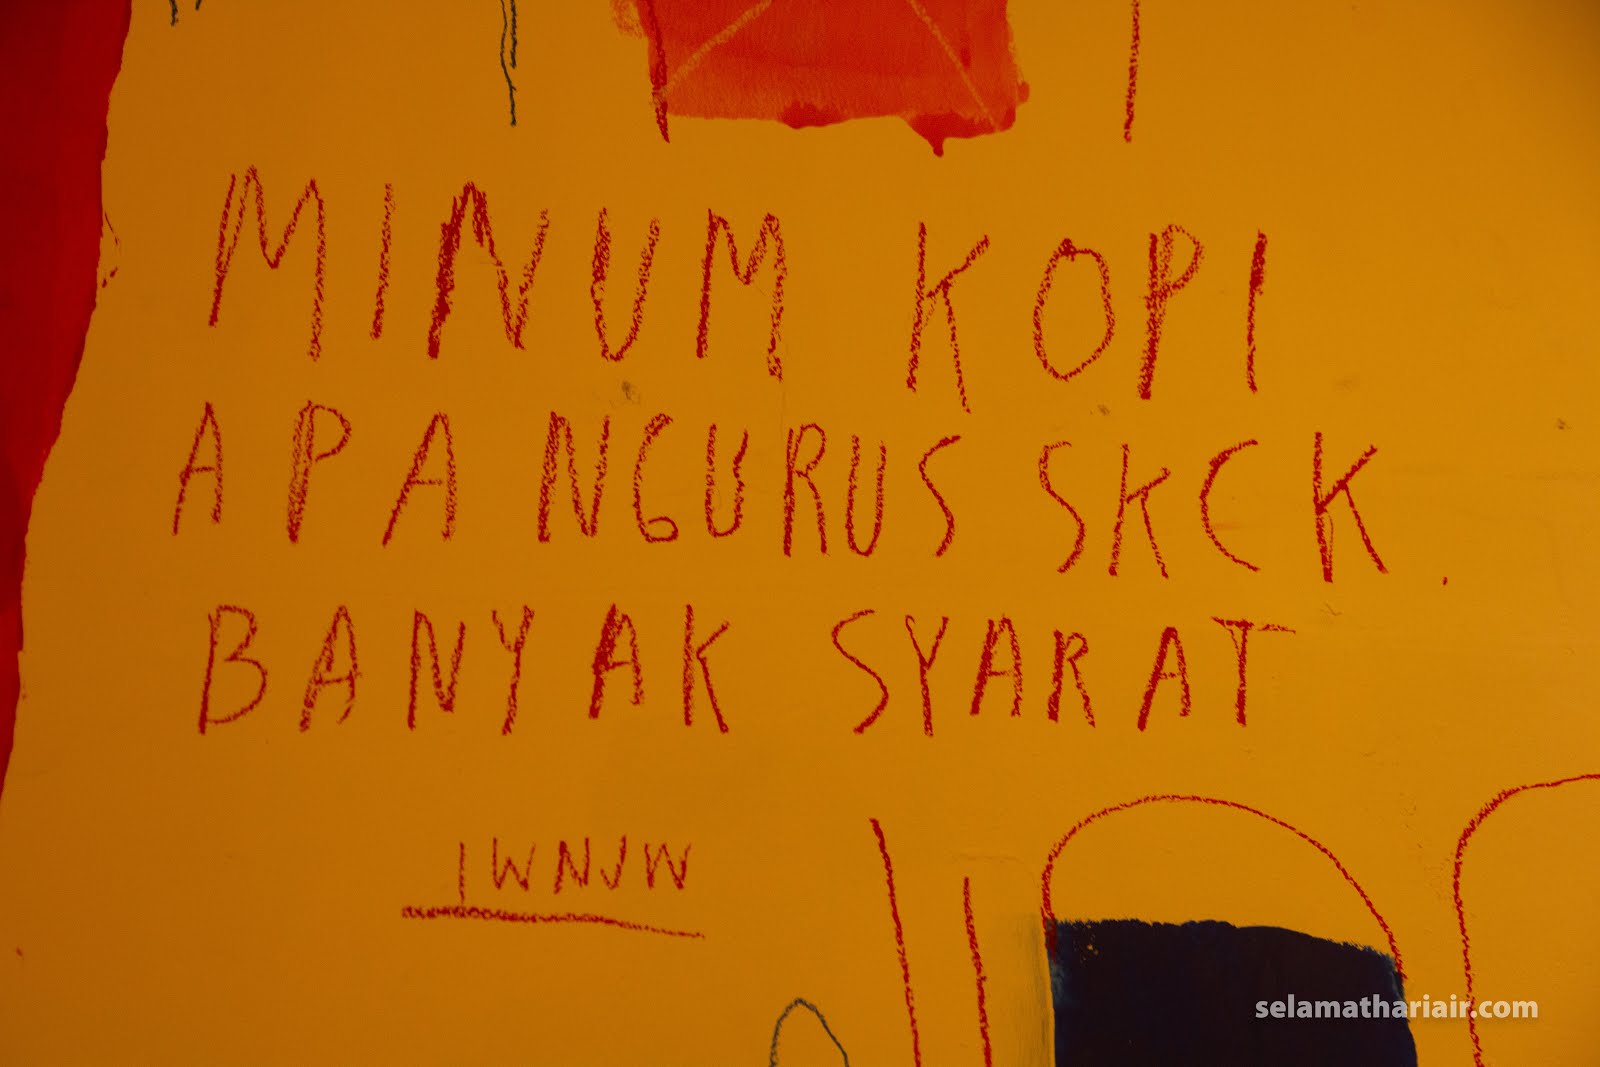 MINUM KOPI
APA NGURUS SKCK.
BANYAK SYARAT
IWNJW
selamathariair.com